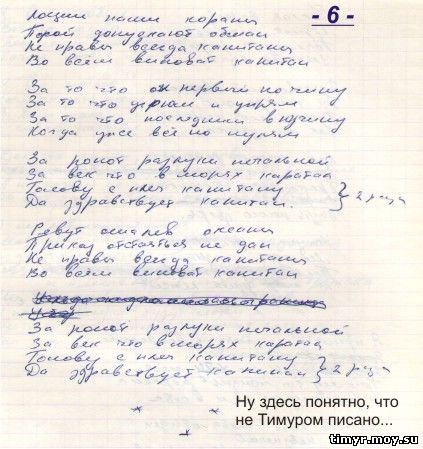 - 6 -
Лоции наши кораны
Порой допускают обман
Не правы всегда капитаны
Во всём виноват капитан
За то что он первый по чину
За то что угрюм и упрям
За то что последним в пучину
Когда уже всё по нулям
За ропот разлуки печальной
За век что в морях каратал
Голову с плеч капитану
Да здравствует капитан. } 2 раза
Ревут ошалев океаны
Приказ отстояться не дан
Не правы всегда капитаны
Во всём виноват капитан
За ропот разлуки печальной
За век что в морях каратал
Голову с плеч капитану
Да здравствует капитан } 2 раза
Ну здесь понятно, что
не Тимуром писано...
timyr.moy.su